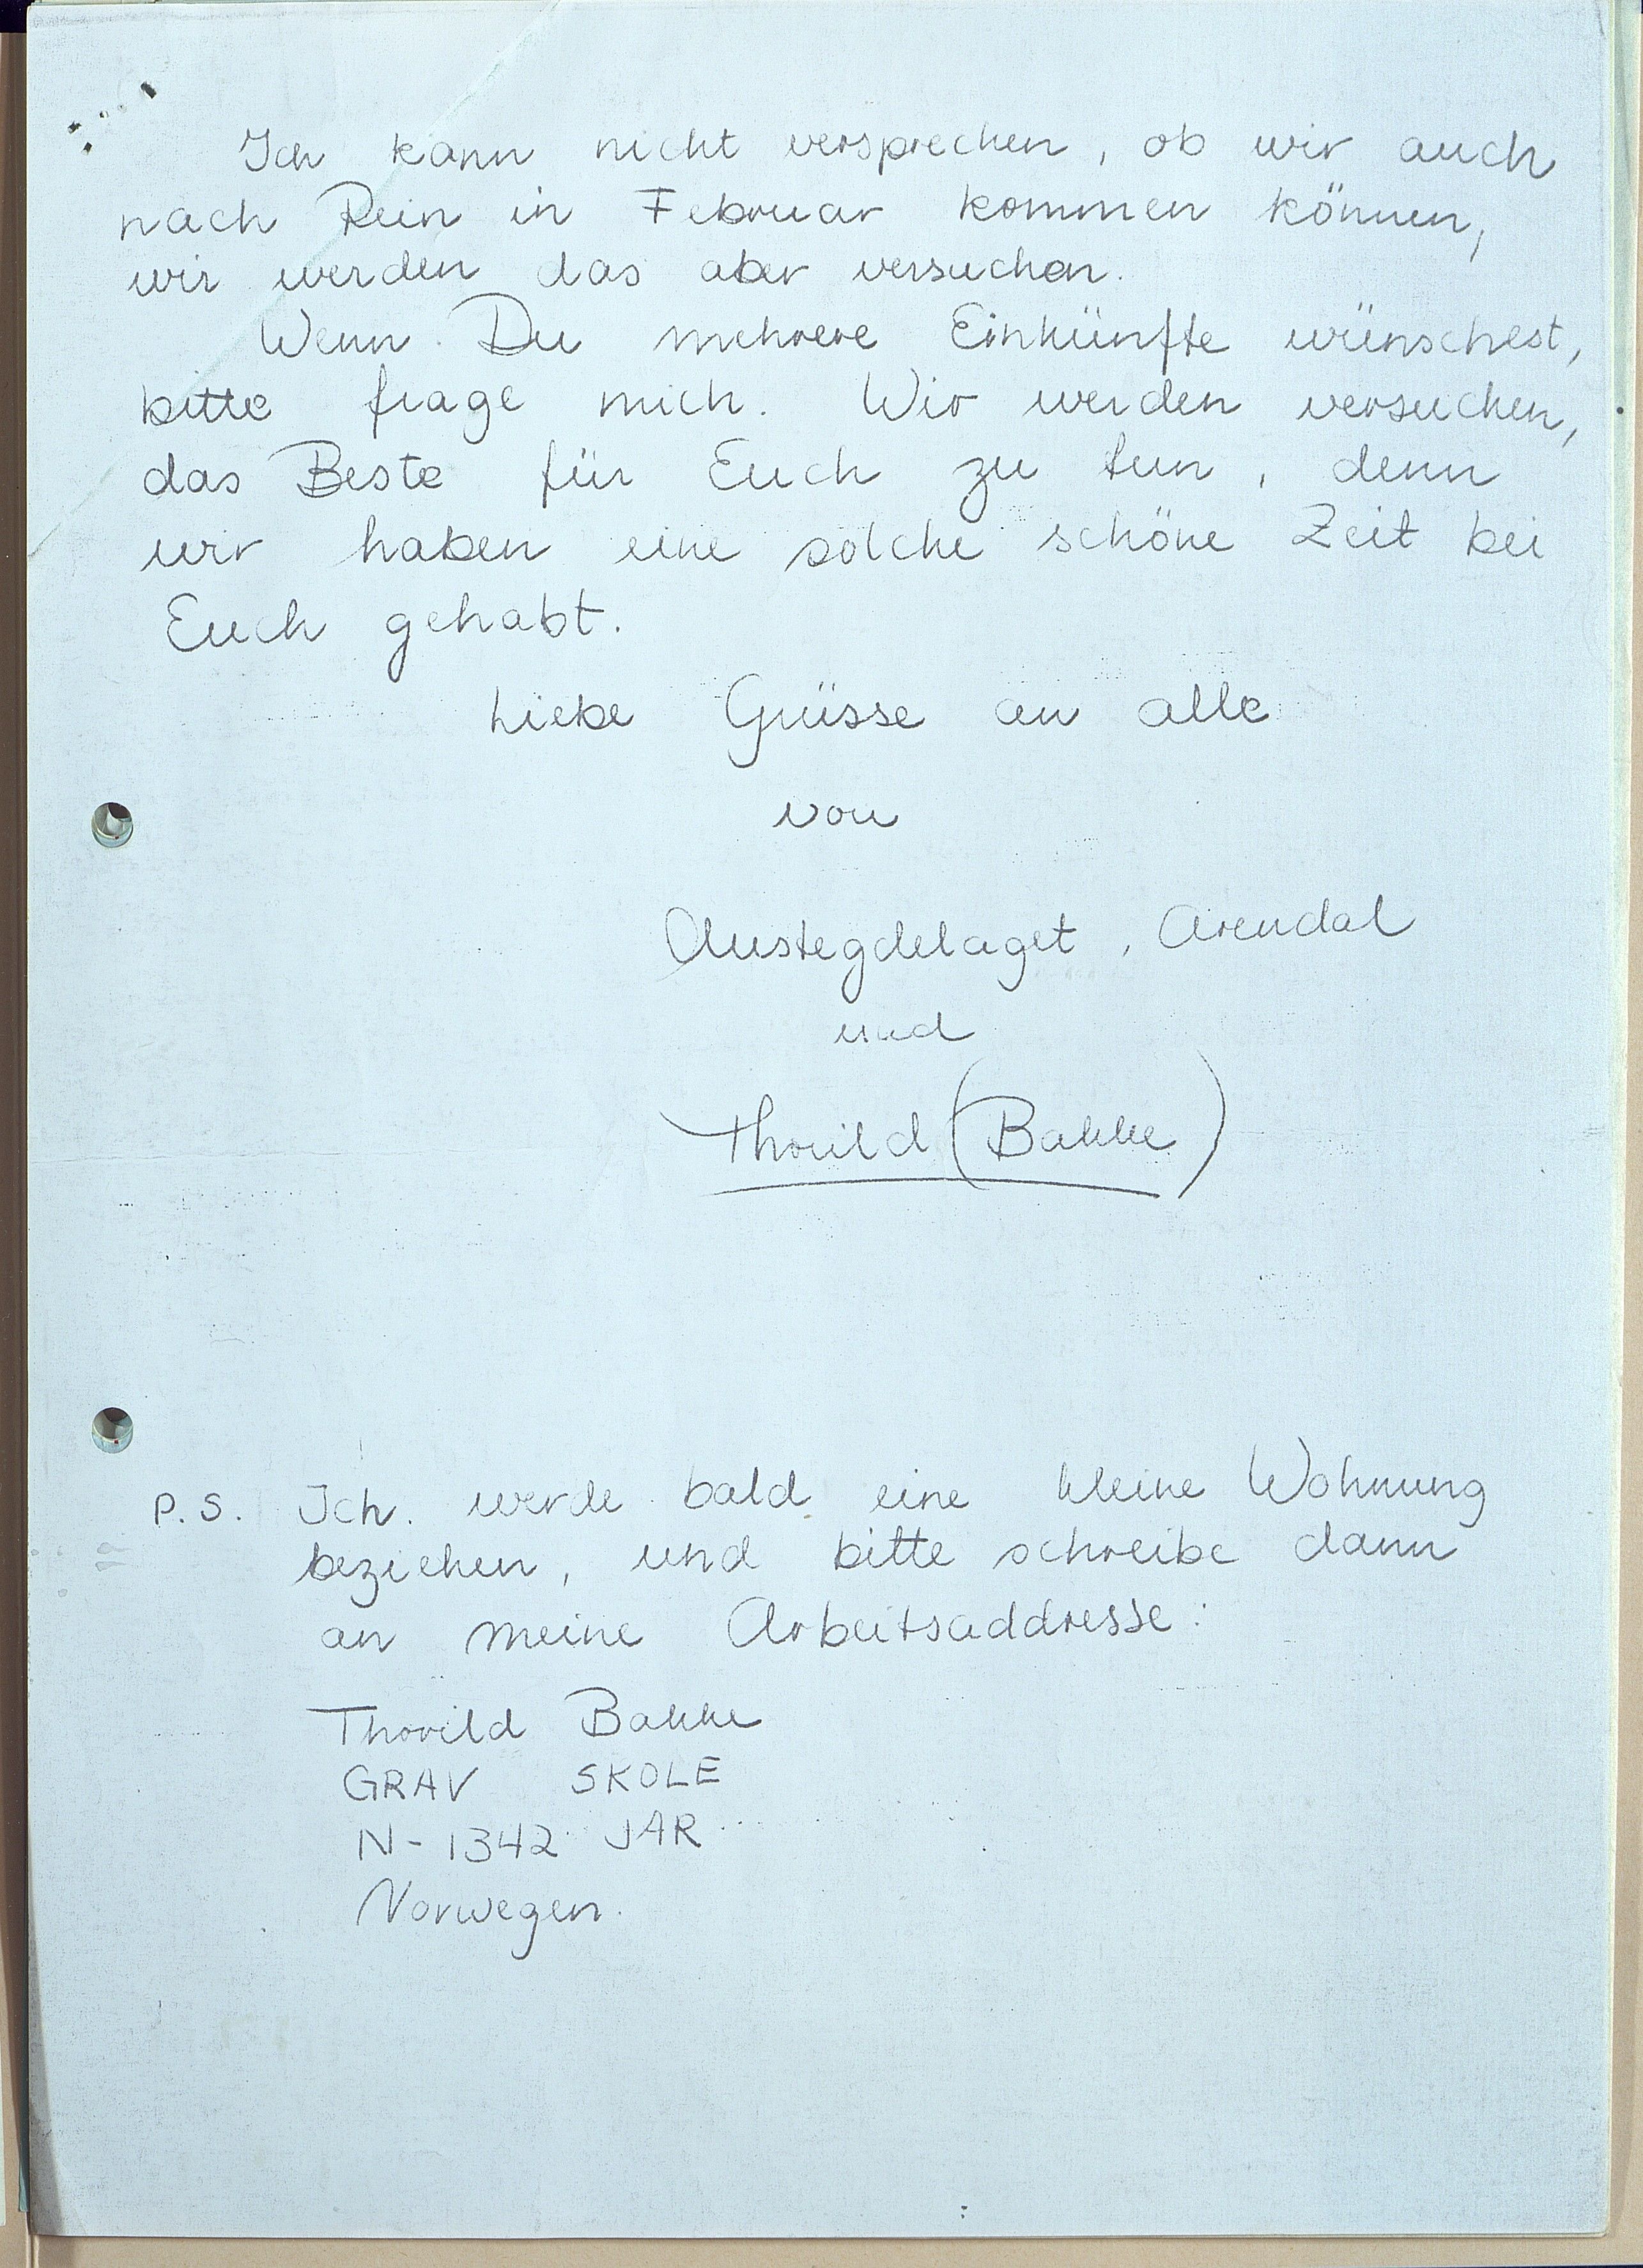 Ich kann nicht versprechen, ob wir auch
nach Rein in Februar kommen können,
wir werden das aber versuchen.
Wenn Du mehrere Einkünfte wünschest,
bitte frage mich. Wir werden versuchen,
das Beste für Euch zu tun, denn
wir haben eine solche schöne Zeit bei
Euch gehabt.
Liebe Grüsse an alle
von
Austegdelaget, Arendal
und
Thorild (Bakke)
P.S. Ich werde bald eine kleine Wohnung
beziehen, und bitte schreibe dann
an meine Arbeitsaddresse:
Thorild Bakke
GRAV SKOLE
N-1342 JAR
Norwegen.